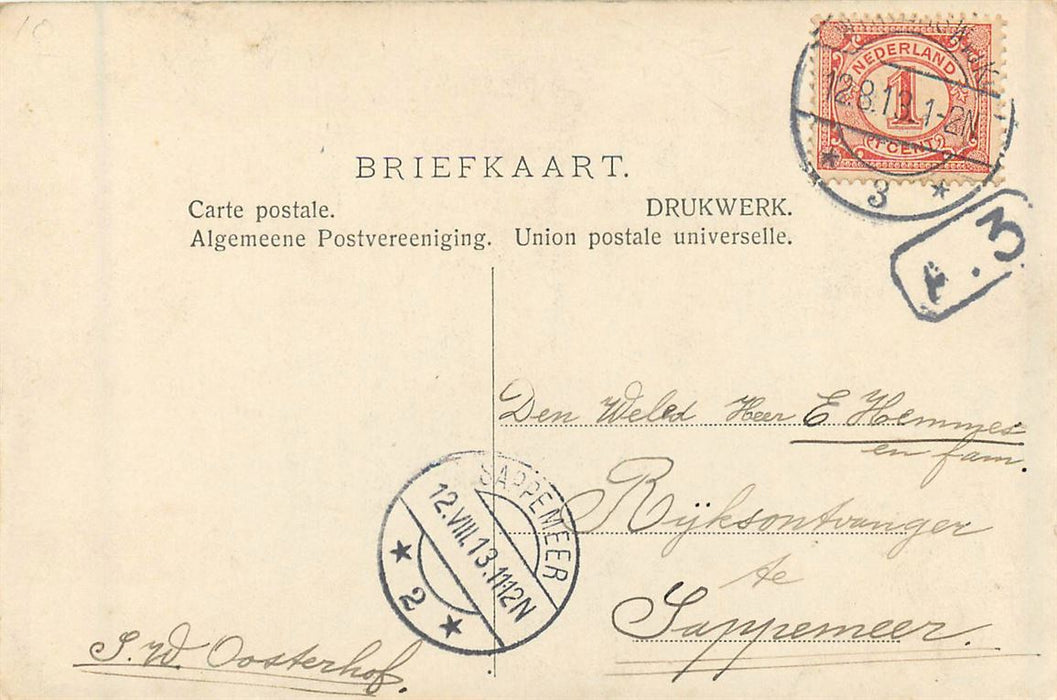 10
NEDERLAND
1
CENT
12.8.13 1-2N
3
BRIEFKAART.
Carte postale. DRUKWERK.
Algemeene Postvereeniging. Union postale universelle.
3
Den Weled Heer E Hemmes
en fam.
Rijksontvanger
te
Sappemeer.
SAPPEMEER
12.VIII.13.11-12N
2
S. W. Oosterhof.